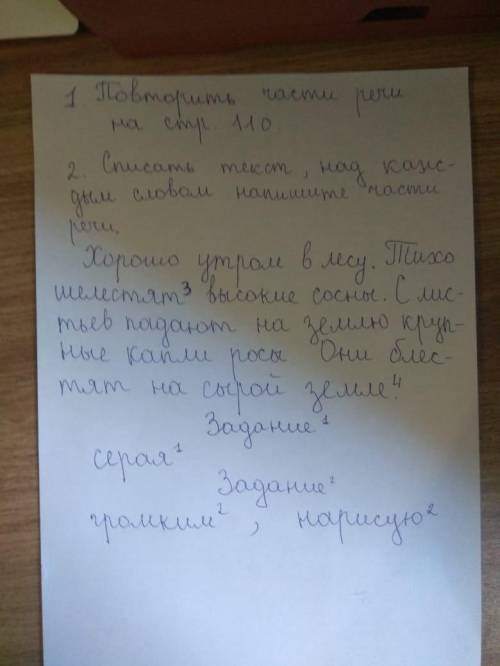 1. Повторить части речи
на стр. 110
2. Списать текст, над каж-
дым словом напишите части
речи.
Хорошо утром в лесу. Тихо
шелестят³ высокие сосны. С лис-
тьев падают на землю круп-
ные капли росы Они блес-
тят на сырой земле.⁴
Задание¹
серая¹
Задание²
громким², нарисую²